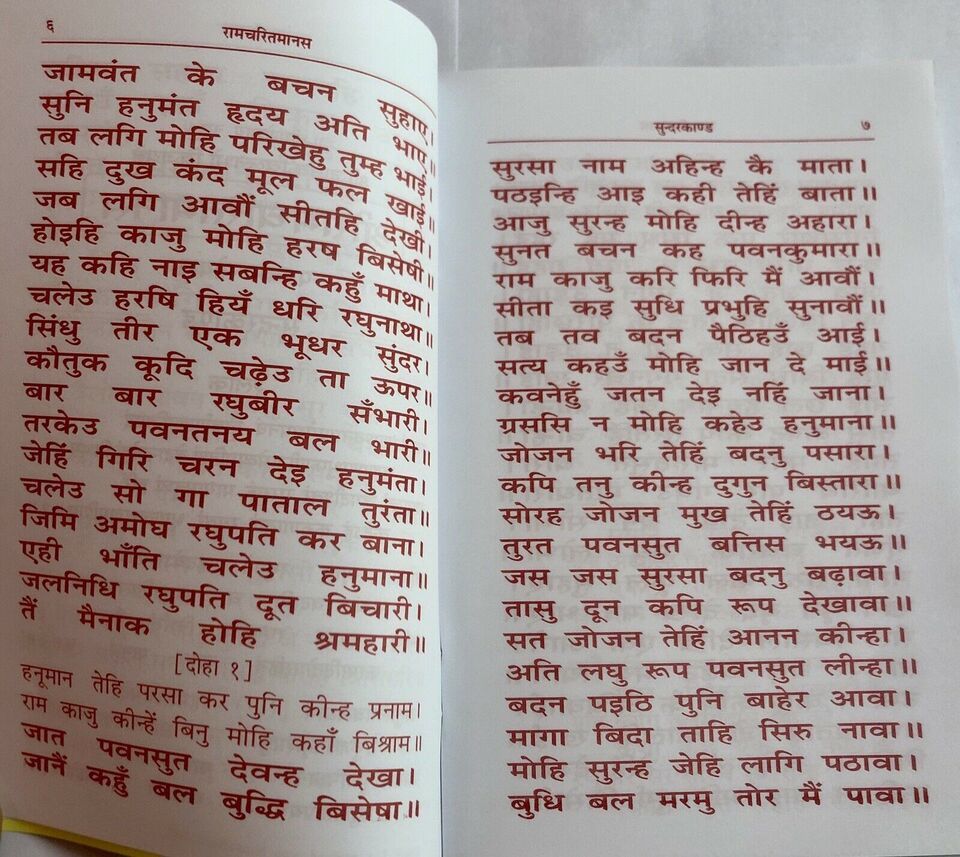 ६
रामचरितमानस
जामवंत के बचन सुहाए।
सुनि हनुमंत हृदय अति भाए॥
तब लगि मोहि परिखेहु तुम्ह भाई।
सहि दुख कंद मूल फल खाई॥
जब लगि आवौं सीतहि देखी।
होइहि काजु मोहि हरष बिसेषी॥
यह कहि नाइ सबन्हि कहुँ माथा।
चलेउ हरषि हियँ धरि रघुनाथा॥
सिंधु तीर एक भूधर सुंदर।
कौतुक कूदि चढ़ेउ ता ऊपर॥
बार बार रघुबीर सँभारी।
तरकेउ पवनतनय बल भारी॥
जेहिं गिरि चरन देइ हनुमंता।
चलेउ सो गा पाताल तुरंता॥
जिमि अमोघ रघुपति कर बाना।
एही भाँति चलेउ हनुमाना॥
जलनिधि रघुपति दूत बिचारी।
तैं मैनाक होहि श्रमहारी॥
[दोहा १]
हनूमान तेहि परसा कर पुनि कीन्ह प्रनाम।
राम काजु कीन्हें बिनु मोहि कहाँ बिश्राम॥
जात पवनसुत देवन्ह देखा।
जानैं कहुँ बल बुद्धि बिसेषा॥
सुन्दरकाण्ड
७
सुरसा नाम अहिन्ह कै माता।
पठइन्हि आइ कही तेहिं बाता॥
आजु सुरन्ह मोहि दीन्ह अहारा।
सुनत बचन कह पवनकुमारा॥
राम काजु करि फिरि मैं आवौं।
सीता कइ सुधि प्रभुहि सुनावौं॥
तब तव बदन पैठिहउँ आई।
सत्य कहउँ मोहि जान दे माई॥
कवनेहुँ जतन देइ नहिं जाना।
ग्रससि न मोहि कहेउ हनुमाना॥
जोजन भरि तेहिं बदनु पसारा।
कपि तनु कीन्ह दुगुन बिस्तारा॥
सोरह जोजन मुख तेहिं ठयऊ।
तुरत पवनसुत बत्तिस भयऊ॥
जस जस सुरसा बदनु बढ़ावा।
तासु दून कपि रूप देखावा॥
सत जोजन तेहिं आनन कीन्हा।
अति लघु रूप पवनसुत लीन्हा॥
बदन पइठि पुनि बाहेर आवा।
मागा बिदा ताहि सिरु नावा॥
मोहि सुरन्ह जेहि लागि पठावा।
बुधि बल मरमु तोर मैं पावा॥